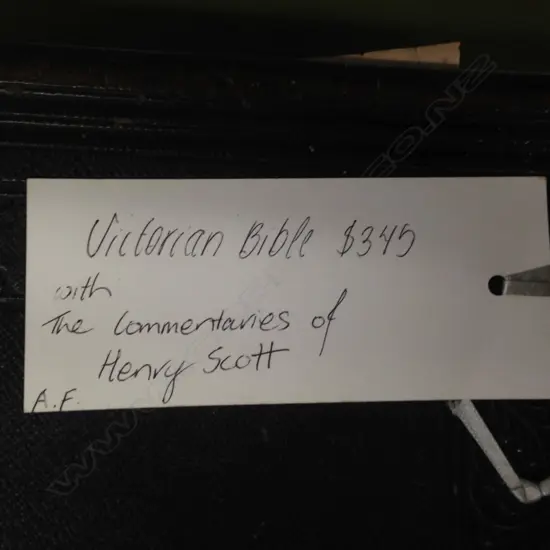 Victorian Bible $345
with
The Commentaries of
Henry Scott
A.F.